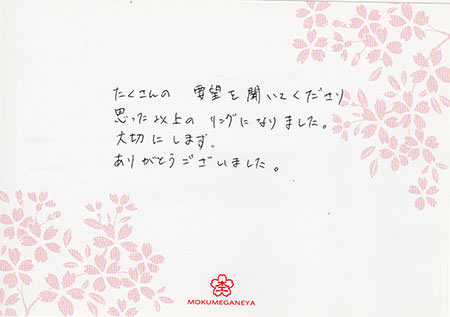 たくさんの 要望を聞いてくださり
思った以上の リングになりました。
大切にします。
ありがとうございました。
MOKUMEGANEYA